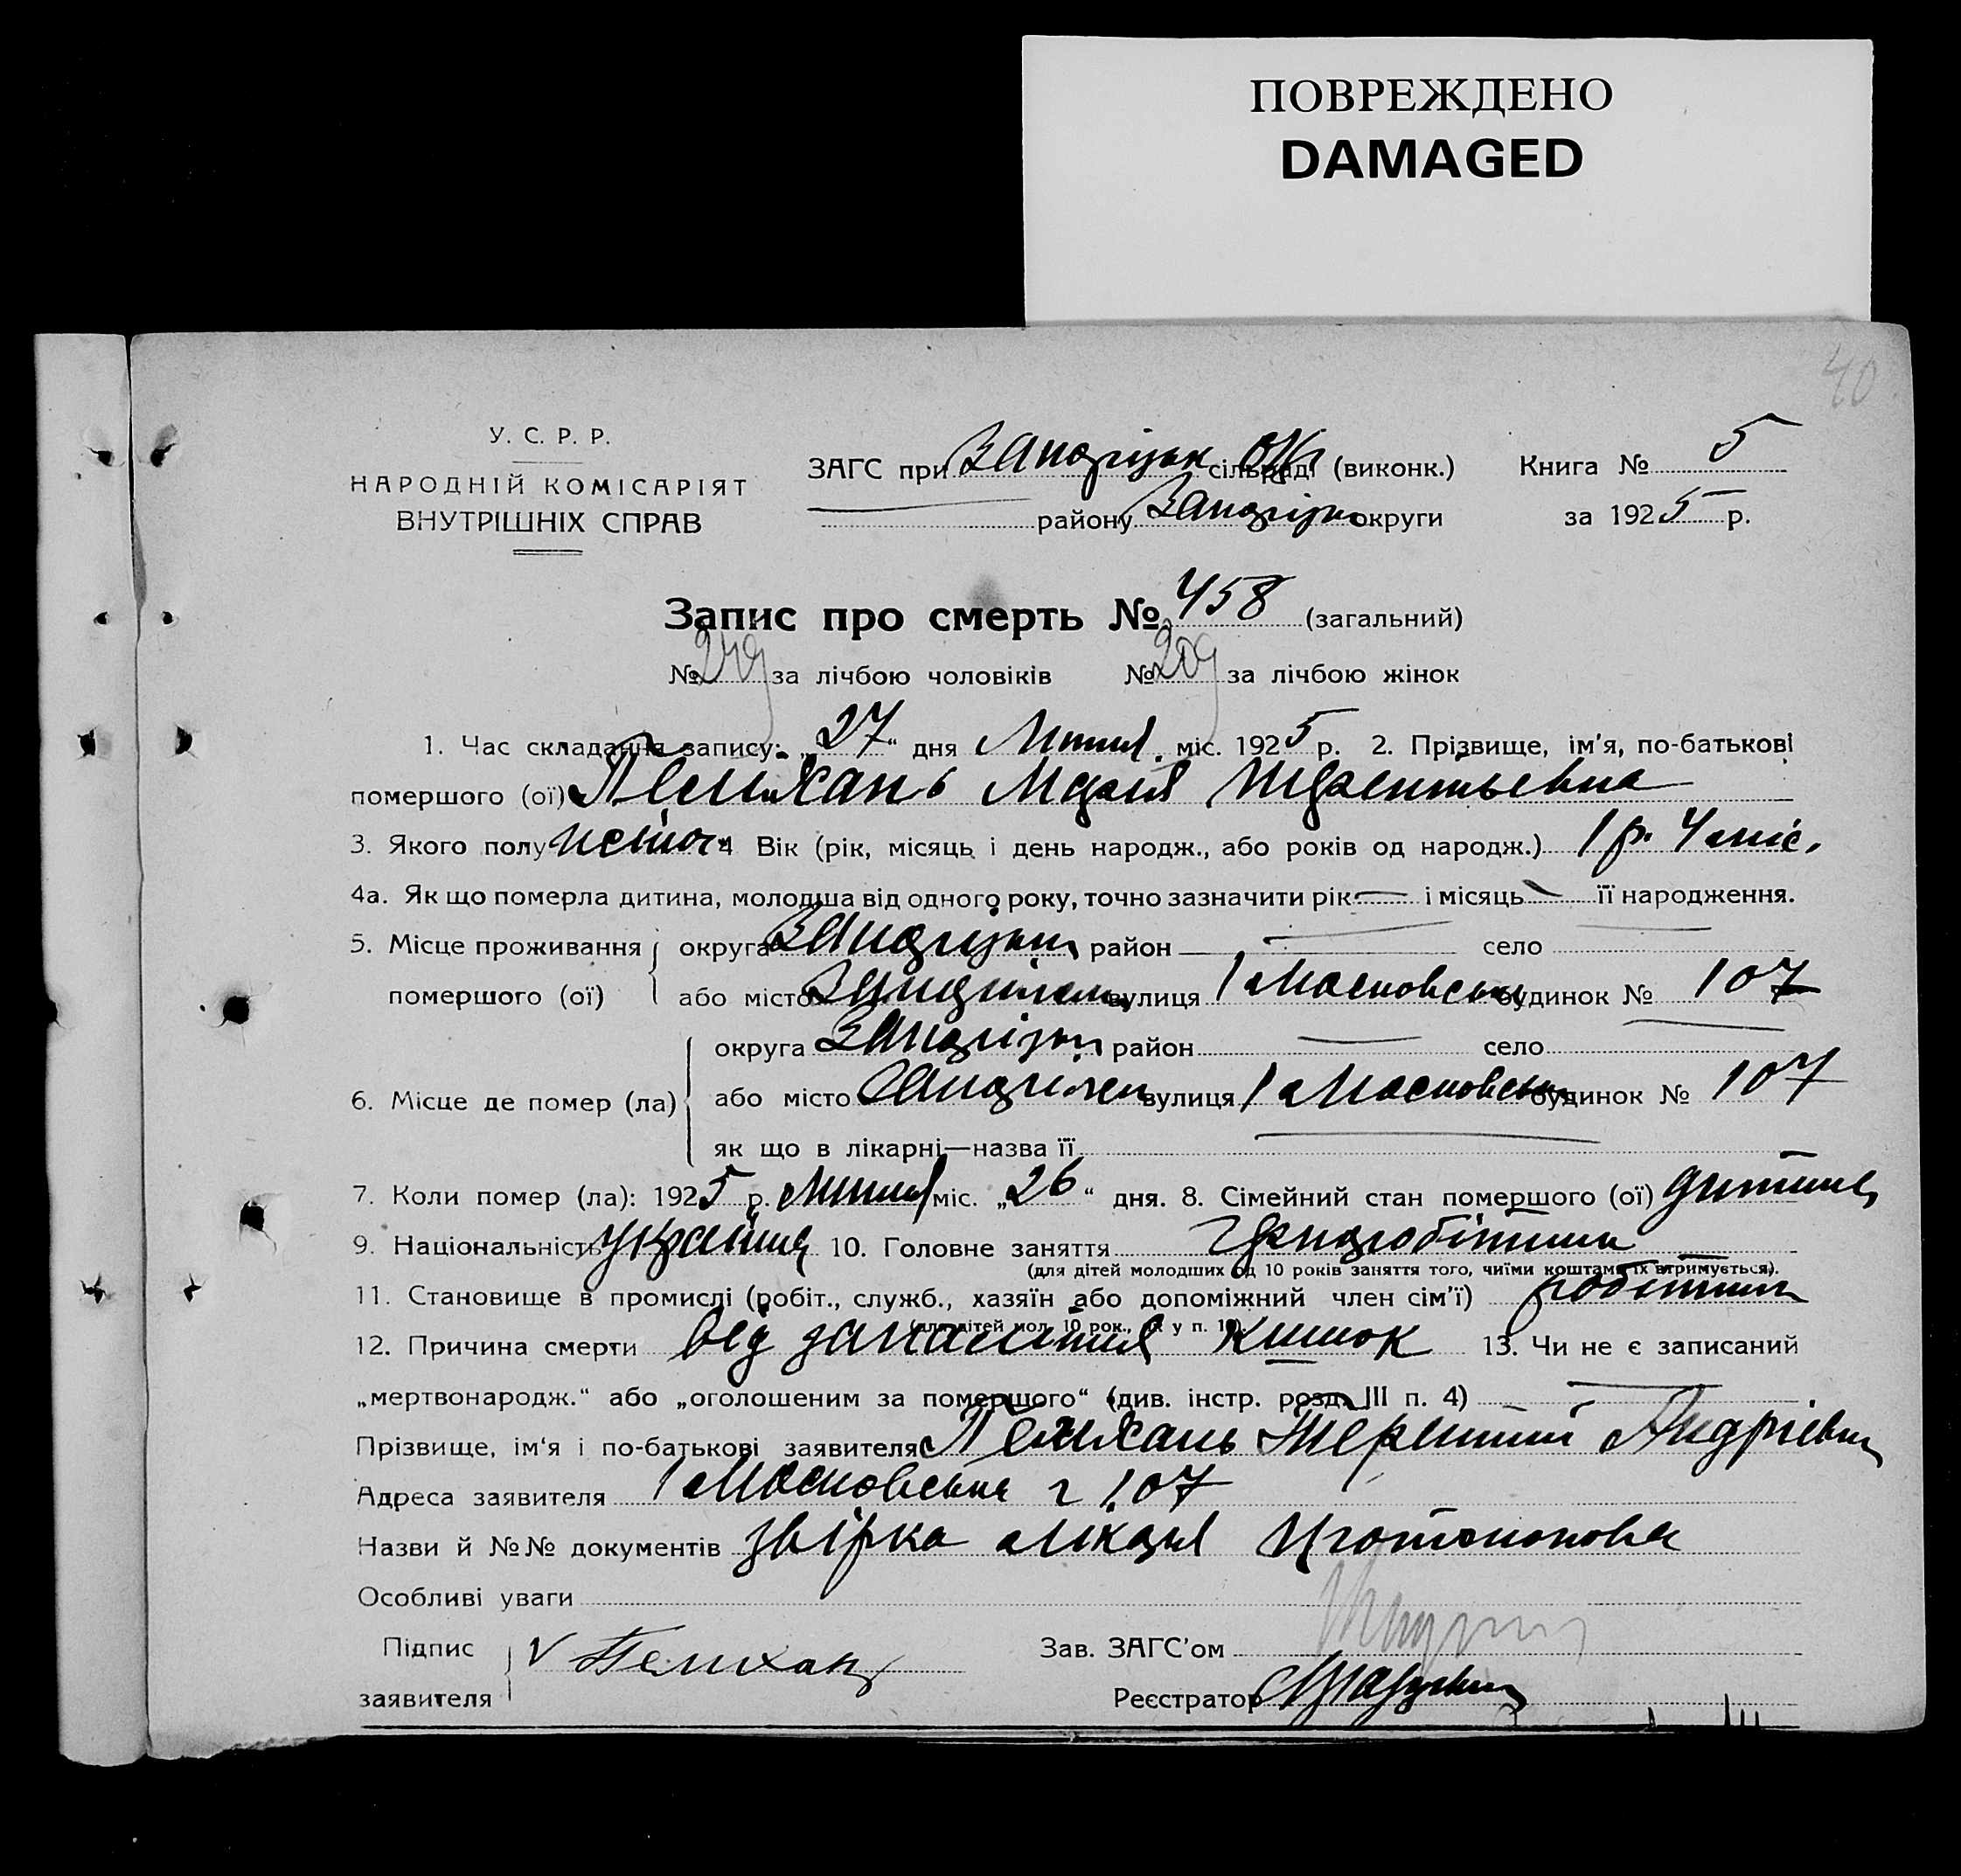 ПОВРЕЖДЕНО
DAMAGED
40
У. С. Р. Р.
НАРОДНІЙ КОМІСАРІЯТ
ВНУТРІШНІХ СПРАВ
ЗАГС при сільраді (виконк.) Книга № 5
району округи за 1925 р.
Запис про смерть № 458 (загальний)
№ 249 за лічбою чоловіків № 209 за лічбою жінок
1. Час складання запису: „27“ дня Липня міс. 1925 р. 2. Прізвище, ім'я, по-батькові
помершого (ої) Пелихань Марія Терентьевна
3. Якого полу 4 Вік (рік, місяць і день народж., або років од народж.) 1 р. 4 міс.
4а. Як що померла дитина, молодша від одного року, точно зазначити рік — і місяць — її народження.
5. Місце проживання округа район — село
помершого (ої) або місто вулиця 1 Московська будинок № 107
округа район — село
6. Місце де помер (ла) або місто вулиця 1 Московська будинок № 107
як що в лікарні—назва її
7. Коли помер (ла): 1925 р. Липня міс. „26“ дня. 8. Сімейний стан помершого (ої) дитина
9. Національність 10. Головне заняття
(для дітей молодших од 10 років заняття того, чиїми коштами їх втримується).
11. Становище в промислі (робіт., служб., хазяїн або допоміжний член сім'ї) робітник
(для дітей мол. 10 рок., як у п. 10).
12. Причина смерти від запалення кишок 13. Чи не є записаний
„мертвонародж.“ або „оголошеним за помершого“ (див. інстр. розд. III п. 4) —
Прізвище, ім'я і по-батькові заявителя Пелихань Терентій Андрієвич
Адреса заявителя 1 Московська 107
Назви й №№ документів звірка лікаря
Особливі уваги
Підпис Пелихань Зав. ЗАГС'ом
заявителя Реєстратор